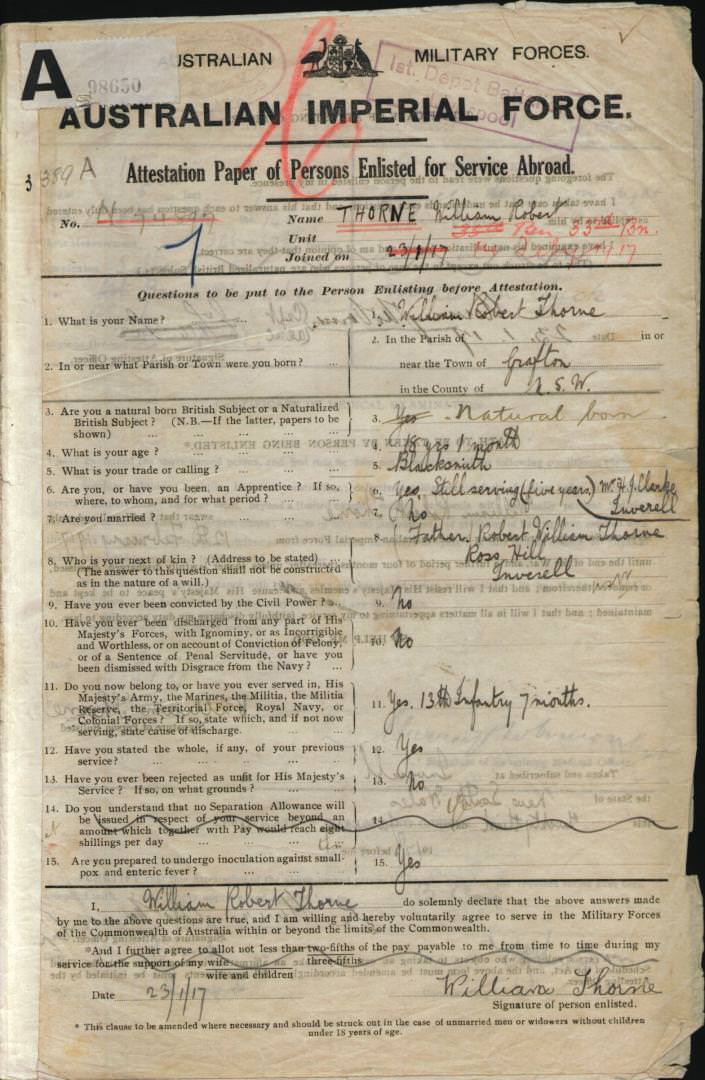 A
98650
AUSTRALIAN MILITARY FORCES.
1st. Depot
AUSTRALIAN IMPERIAL FORCE.
Attestation Paper of Persons Enlisted for Service Abroad.
3
389 A
No.
Name THORNE William Rober
Unit 33rd Bn.
Joined on 23/1/17
Questions to be put to the Person Enlisting before Attestation.
1. What is your Name? 1. William Robert Thorne
2. In or near what Parish or Town were you born? ...
2. In the Parish of in or
near the Town of Grafton
in the County of N.S.W.
3. Are you a natural born British Subject or a Naturalized
British Subject? (N.B.—If the latter, papers to be
shown) ... ... ... ...
3. Yes. Natural born
4. What is your age? ... ... ... 4. 18 yrs 1 month
5. What is your trade or calling? ... ... 5. Blacksmith
6. Are you, or have you been, an Apprentice? If so,
where, to whom, and for what period? ... ...
6. Yes. Still serving (five years) Mr H.J. Clarke
Inverell
7. Are you married? ... ... ... 7. No
8. Who is your next of kin? (Address to be stated) ...
(The answer to this question shall not be constructed
as in the nature of a will.)
8. Father. Robert William Thorne
Ross Hill
Inverell
NSW
9. Have you ever been convicted by the Civil Power? ... 9. No
10. Have you ever been discharged from any part of His
Majesty's Forces, with Ignominy, or as Incorrigible
and Worthless, or on account of Conviction of Felony,
or of a Sentence of Penal Servitude, or have you
been dismissed with Disgrace from the Navy? ...
10. No
11. Do you now belong to, or have you ever served in, His
Majesty's Army, the Marines, the Militia, the Militia
Reserve, the Territorial Force, Royal Navy, or
Colonial Forces? If so, state which, and if not now
serving, state cause of discharge. ... ...
11. Yes. 13th Infantry 7 months.
12. Have you stated the whole, if any, of your previous
service? ... ... ... ...
12. Yes
13. Have you ever been rejected as unfit for His Majesty's
Service? If so, on what grounds? ... ...
13. No
14. Do you understand that no Separation Allowance will
be issued in respect of your service beyond an
amount which together with Pay would reach eight
shillings per day ... ... ...
14.
15. Are you prepared to undergo inoculation against small-
pox and enteric fever? ... ... ...
15. Yes
I, William Robert Thorne do solemnly declare that the above answers made
by me to the above questions are true, and I am willing and hereby voluntarily agree to serve in the Military Forces
of the Commonwealth of Australia within or beyond the limits of the Commonwealth.
*And I further agree to allot not less than two-fifths of the pay payable to me from time to time during my
three-fifths
service for the support of my wife
wife and children
Date 23/1/17
William Thorne
Signature of person enlisted.
* This clause to be amended where necessary and should be struck out in the case of unmarried men or widowers without children
under 18 years of age.